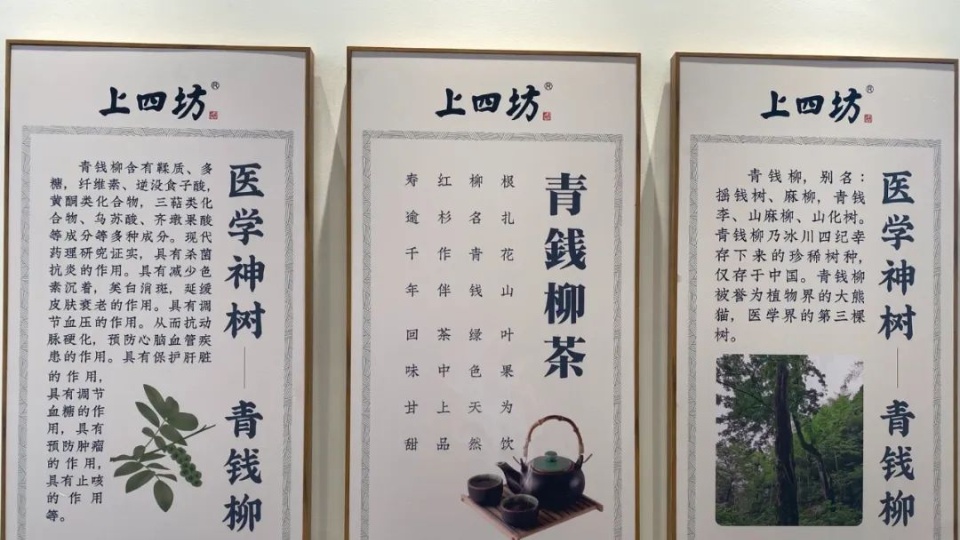 上四坊®
医学神树——青钱柳
青钱柳含有鞣质、多
糖，纤维素、逆没食子酸，
黄酮类化合物，三萜类化
合物、乌苏酸、齐墩果酸
等成分等多种成分。现代
药理研究证实，具有杀菌
抗炎的作用。具有减少色
素沉着，美白消斑，延缓
皮肤衰老的作用。具有调
节血压的作用。从而抗动
脉硬化，预防心脑血管疾
患的作用。具有保护肝脏
的作用，
具有调节
血糖的作
用，具有
预防肿瘤
的作用，
具有止咳
的作用
等。
上四坊®
青銭柳茶
根扎花山 叶果为饮
柳名青钱 绿色天然
红杉作伴 茶中上品
寿逾千年 回味甘甜
上四坊®
医学神树——青钱柳
青钱柳，别名：
摇钱树、麻柳，青钱
李、山麻柳、山化树。
青钱柳乃冰川四纪幸
存下来的珍稀树种，
仅存于中国。青钱柳
被誉为植物界的大熊
猫，医学界的第三棵
树。